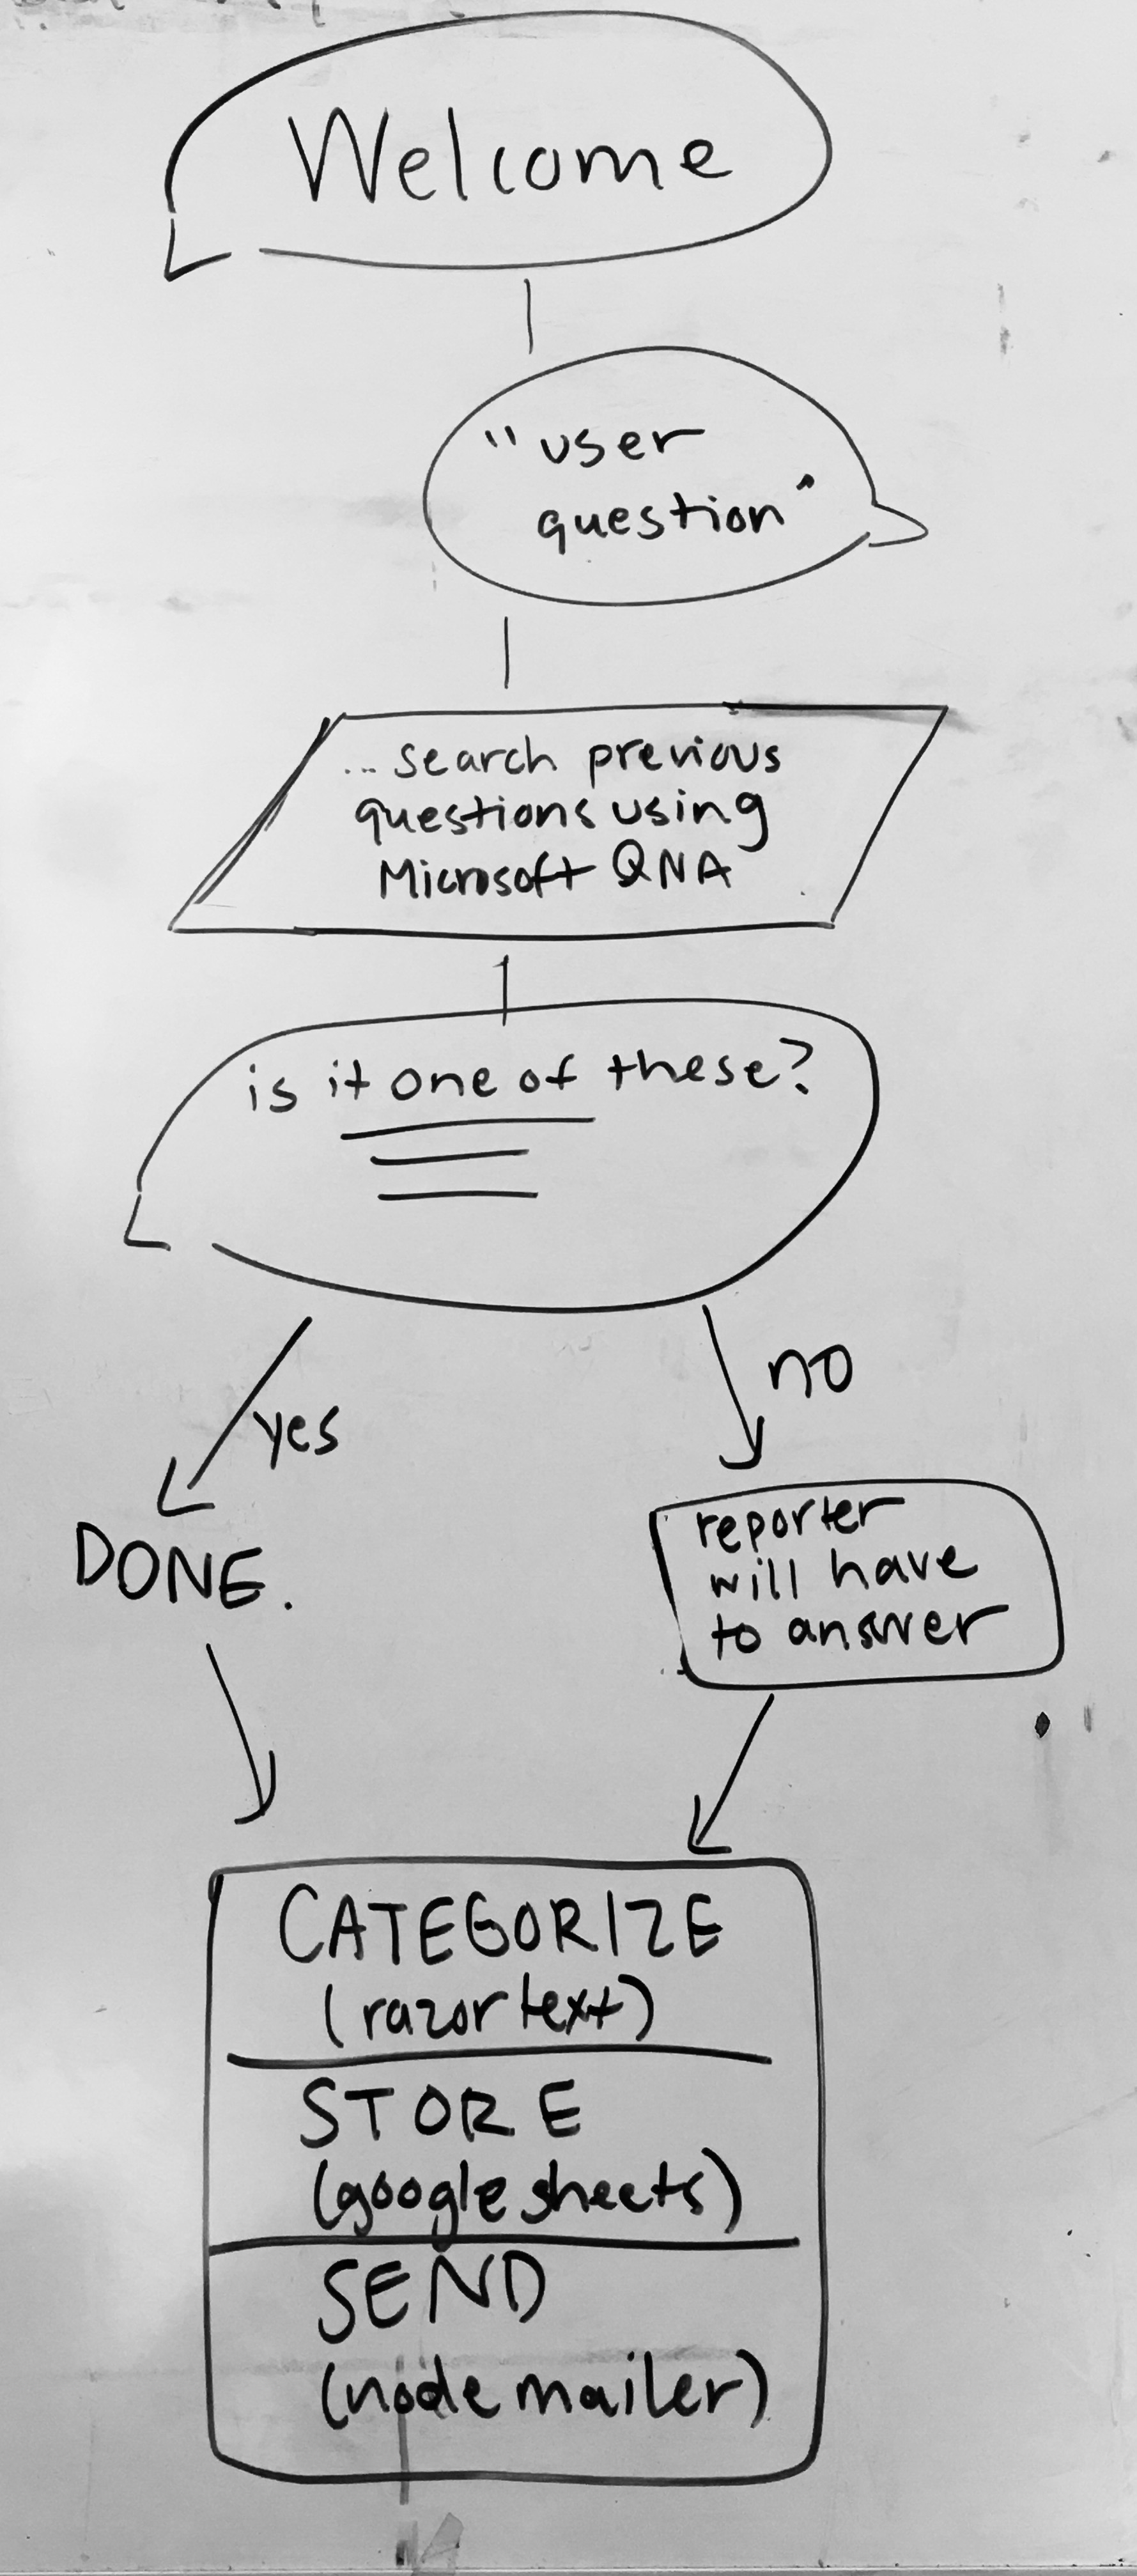 Welcome
"user
question"
... search previous
questions using
Microsoft QNA
is it one of these?
yes
no
DONE.
reporter
will have
to answer
CATEGORIZE
(razor text)
STORE
(google sheets)
SEND
(node mailer)